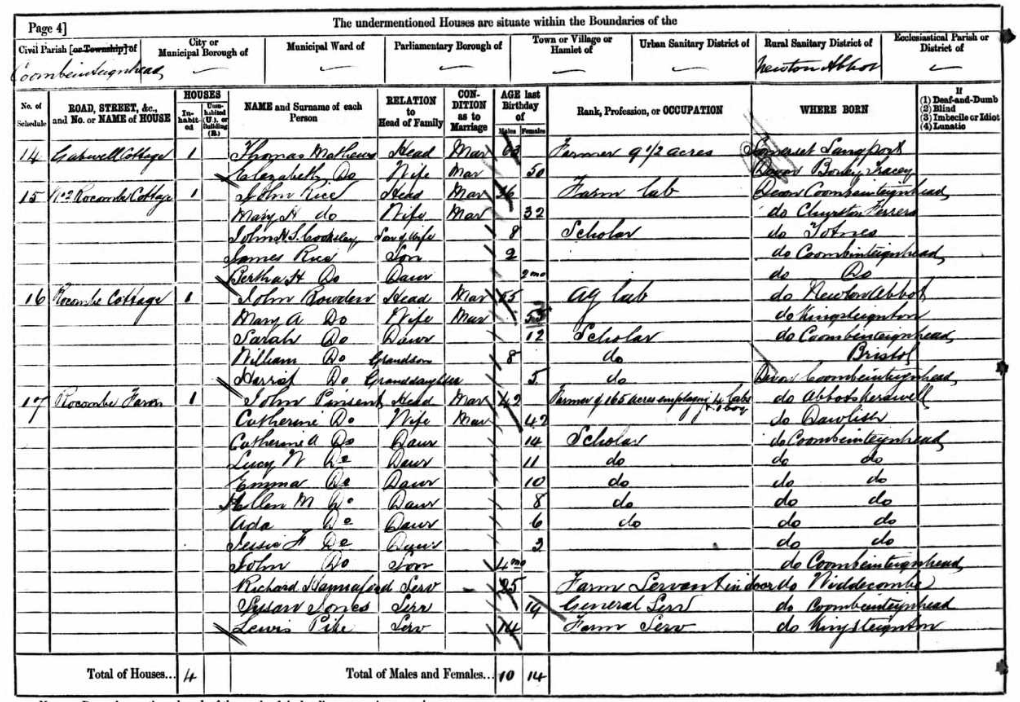 Page 4] The undermentioned Houses are situate within the Boundaries of the
Civil Parish [or Township] of City or Municipal Borough of Municipal Ward of Parliamentary Borough of Town or Village or Hamlet of Urban Sanitary District of Rural Sanitary District of Ecclesiastical Parish or District of
Coombeinteignhead Newton Abbot
No. of Schedule ROAD, STREET, &c., and No. or NAME of HOUSE HOUSES Inhabited Uninhabited (U.), or Building (B.) NAME and Surname of each Person RELATION to Head of Family CONDITION as to Marriage AGE last Birthday of Males Females Rank, Profession, or OCCUPATION WHERE BORN If (1) Deaf-and-Dumb (2) Blind (3) Imbecile or Idiot (4) Lunatic
14 Cottage 1 Thomas Mathews Head Mar 63 Farmer 9 1/2 acres Somerset Langport
Elizabeth Do Wife Mar 50 Devon Bovey Tracey
15 No 2 Rocombe Cottage 1 John Rice Head Mar 36 Farm lab Devon Coombeinteignhead
Mary H do Wife Mar 32 do Churston Ferrers
John H. S. Son of Wife 8 Scholar do Totnes
James Rice Son 2 do Coombinteignhead
Bertha H Do Daur 2mo do Do
16 Rocombe Cottage 1 John Rowden Head Mar 55 Ag lab do Newton Abbot
Mary A Do Wife Mar 55 do Kingsteignton
Sarah Do Daur 12 Scholar do Coombeinteignhead
William Do Grandson 8 do Bristol
Do Granddaughter 5 do Devon Coombeinteignhead
17 Rocombe Farm 1 John Pinsent Head Mar 42 Farmer of 165 acres employing 4 labs & 1 boy do Abbotskerswell
Catherine Do Wife Mar 42 do Dawlish
Catherine A Do Daur 14 Scholar do Coombeinteignhead
Lucy W Do Daur 11 do do do
Emma Do Daur 10 do do do
Hellen M Do Daur 8 do do do
Ada Do Daur 6 do do do
Jessie F Do Daur 2 do do
John Do Son 4mo do Coombeinteignhead
Richard Hannaford Serv - 25 Farm Servant indoor do Widdecombe
Susan Jones Serv 19 General Serv do Coombeinteignhead
Lewis Pike Serv 14 Farm Serv do Kingsteignton
Total of Houses... 4 Total of Males and Females... 10 14